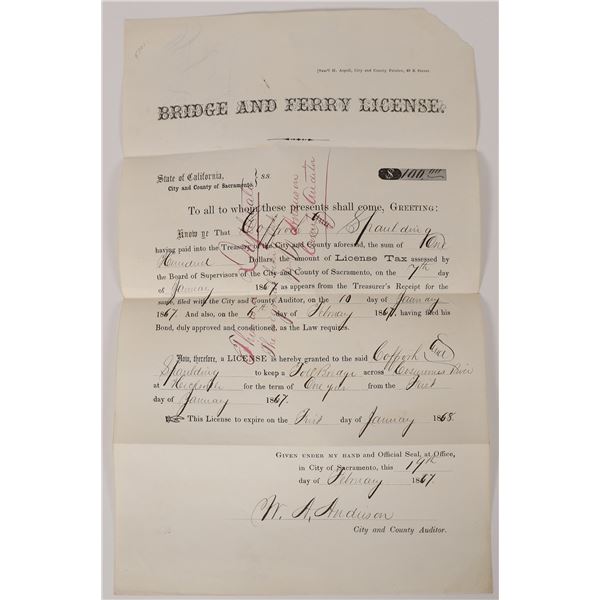 City and County Printer,
BRIDGE AND FERRY LICENSE.
State of California, } ss
City and County of Sacramento.
$100.00
To all to whom these presents shall come, GREETING:
Know ye That Coffroth and Spaulding
having paid into the Treasury of the City and County aforesaid, the sum of One
Hundred Dollars, the amount of License Tax assessed by
the Board of Supervisors of the City and County of Sacramento, on the 7th day
of January 1867, as appears from the Treasurer's Receipt for the
same, filed with the City and County Auditor, on the 10 day of January
1867. And also, on the day of February 1867, having filed his
Bond, duly approved and conditioned, as the Law requires.
Now, therefore, a LICENSE is hereby granted to the said Coffroth and
Spaulding to keep a Toll Bridge across Cosumnes River
at for the term of One year from the First
day of January 1867.
This License to expire on the First day of January 1868.
GIVEN UNDER MY HAND and Official Seal, at Office,
in City of Sacramento, this 19th
day of February 1867.
W. A. Anderson
City and County Auditor.
Duplicate
W. A. Anderson
County Auditor